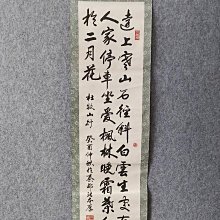 遠上寒山石徑斜白雲生處有
人家停車坐愛楓林晚霜葉
於二月花
杜牧山行 癸酉仲秋